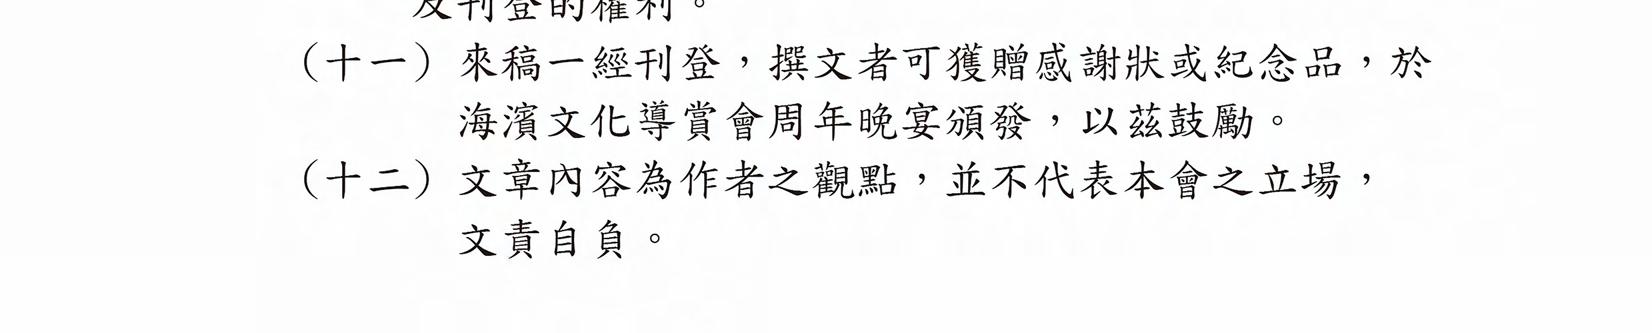 及刊登的權利。
（十一）來稿一經刊登，撰文者可獲贈感謝狀或紀念品，於
海濱文化導賞會周年晚宴頒發，以茲鼓勵。
（十二）文章內容為作者之觀點，並不代表本會之立場，
文責自負。